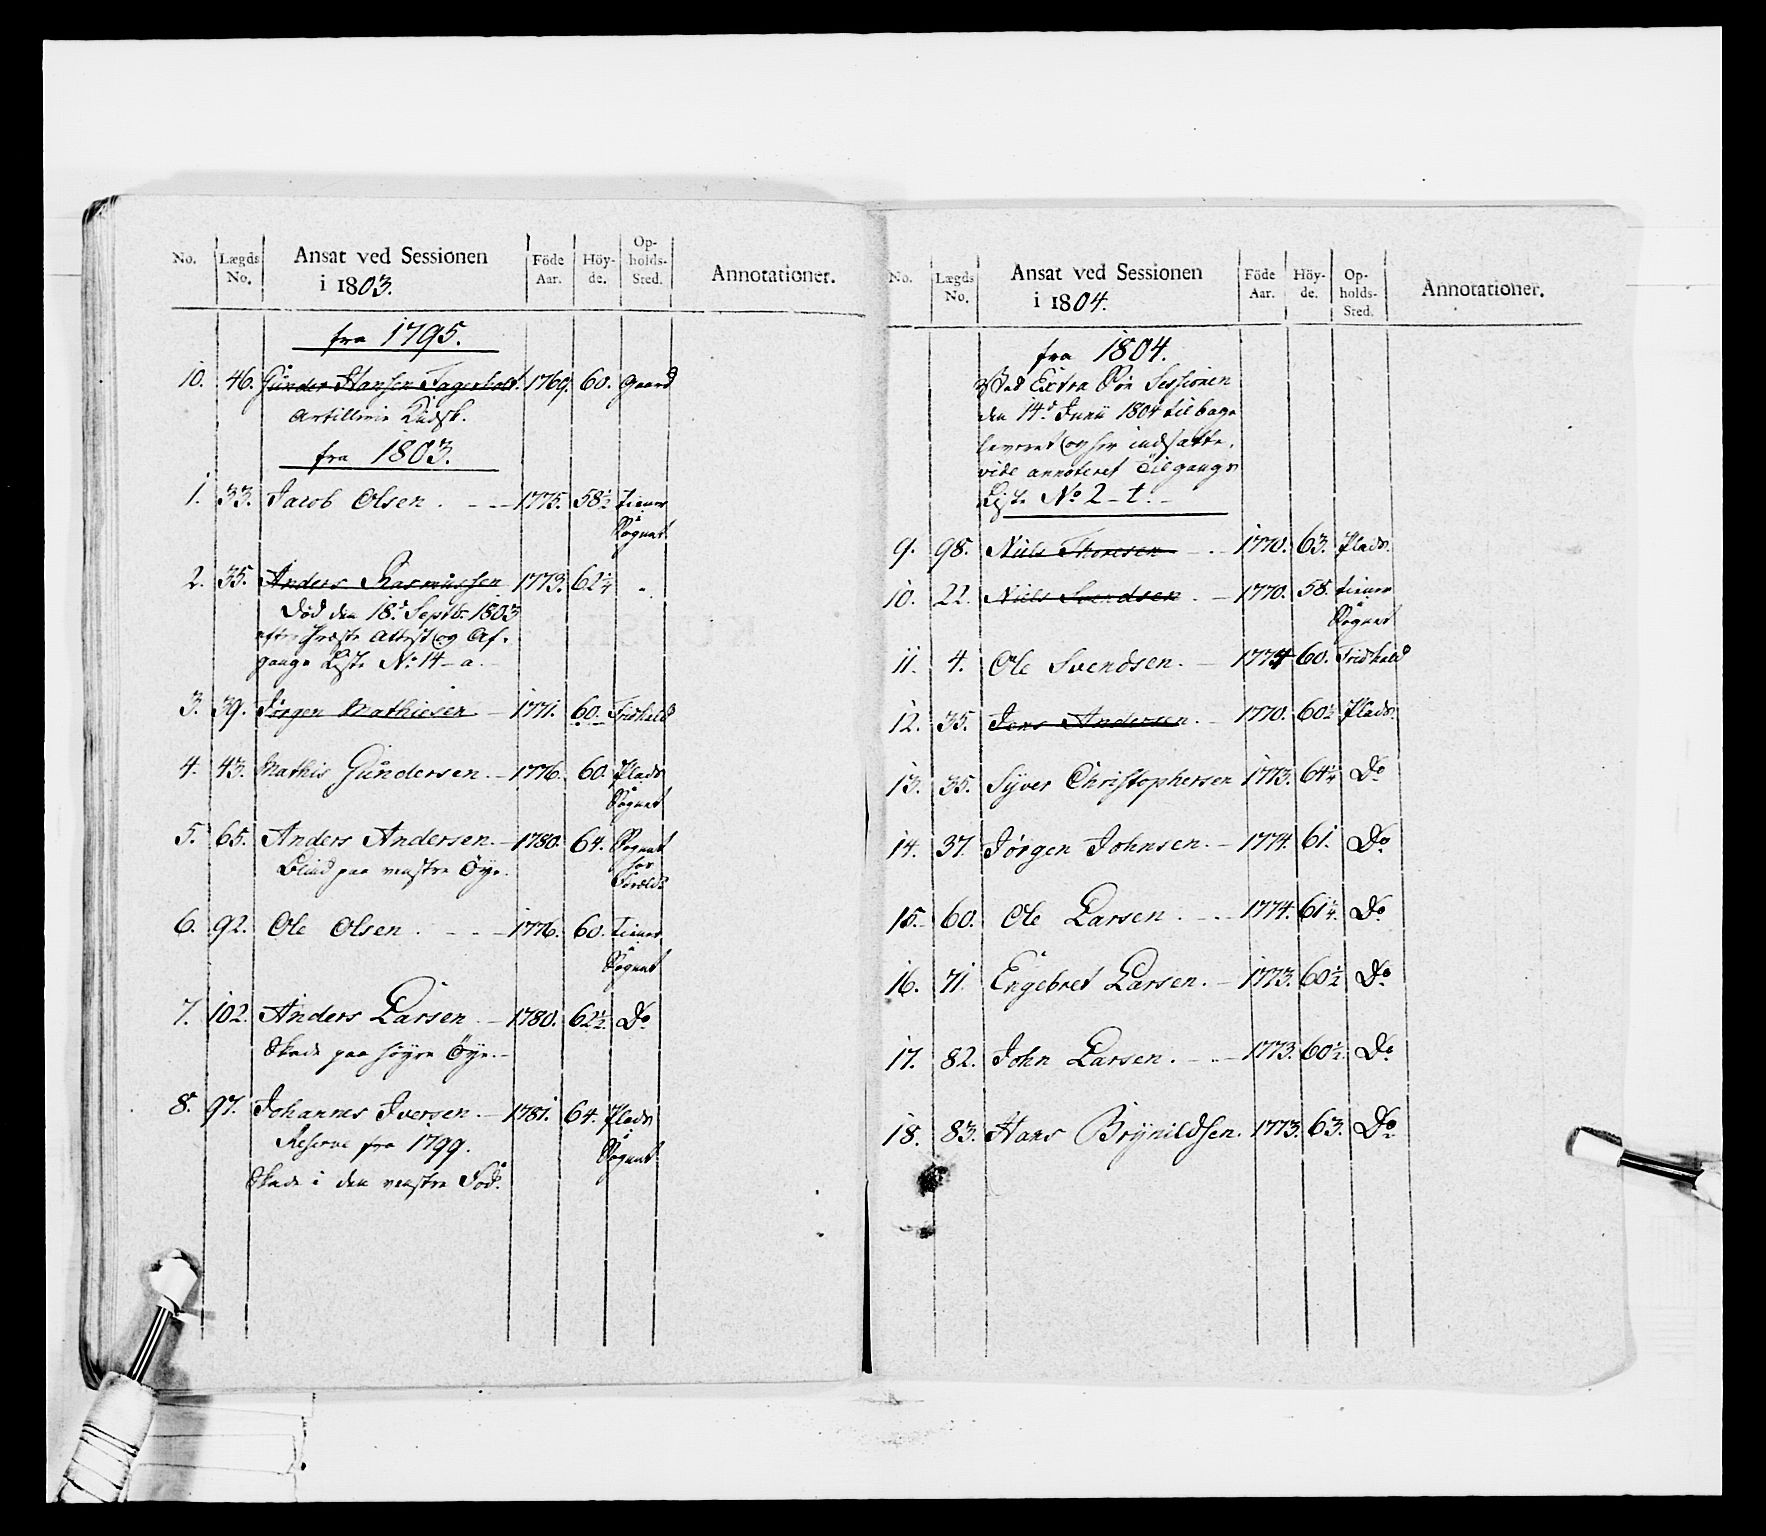 No. Lægds No. Ansat ved Sessionen i 1803. Föde Aar. Höyde. Opholds-Sted. Annotationer.
fra 1795.
10. 46. Gunder Hansen Fagerholt. 1769. 60. Gaard
Artillerie Kudsk.
fra 1803.
1. 33. Jacob Olsen. - - 1775. 58½ tiener
Sognet
2. 35. Anders Rasmussen 1773. 62¼ "
Död den 18d Septb. 1803
efter Præste Attest og Af-
gangs Liste No 14 - a. -
3. 39. Jörgen Mathiesen - 1771. 60. Fridhald
4. 43. Mathis Gundersen. - 1776. 60. Plads
Sognet
5. 65. Anders Andersen. - 1780. 64. Sognet
hos
Blind paa venstre Öye.
6. 92. Ole Olsen. - - - 1776. 60. tiener
Sognet
7. 102. Anders Larsen. - 1780. 62½. Do
Skade paa høyre Öye. -
8. 97. Johannes Iversen. - 1781. 64. Plads
Reserve fra 1799. Sognet
Skade i den venstre Fod.
No. Lægds No. Ansat ved Sessionen i 1804. Föde Aar. Höy-de. Op-holds-Sted. Annotationer.
fra 1804.
Ved Extra Söe Sessionen
den 14d Junii 1804 tilbage
leveret og her indsatte,
vide annoteret Tilgangs
Liste No 2 - t. -
9. 98. Niels Thoresen - - 1770. 63. Plads.
10. 22. Niels Svendsen. - 1770. 58. tiener
Sognet
11. 4. Ole Svendsen. - 1774 60. Fridhald
12. 35. Jens Andersen. - 1770. 60½ Plads.
13. 35. Syver Christophersen 1773. 64¼ Do
14. 37. Jörgen Johnsen. - 1774. 61. Do
15. 60. Ole Larsen. - - 1774. 61¼. Do
16. 71. Engebret Larsen. - 1773. 60½ Do
17. 82. John Larsen. - - 1773. 60½. Do
18. 83. Hans Brynildsen. 1773. 63. Do